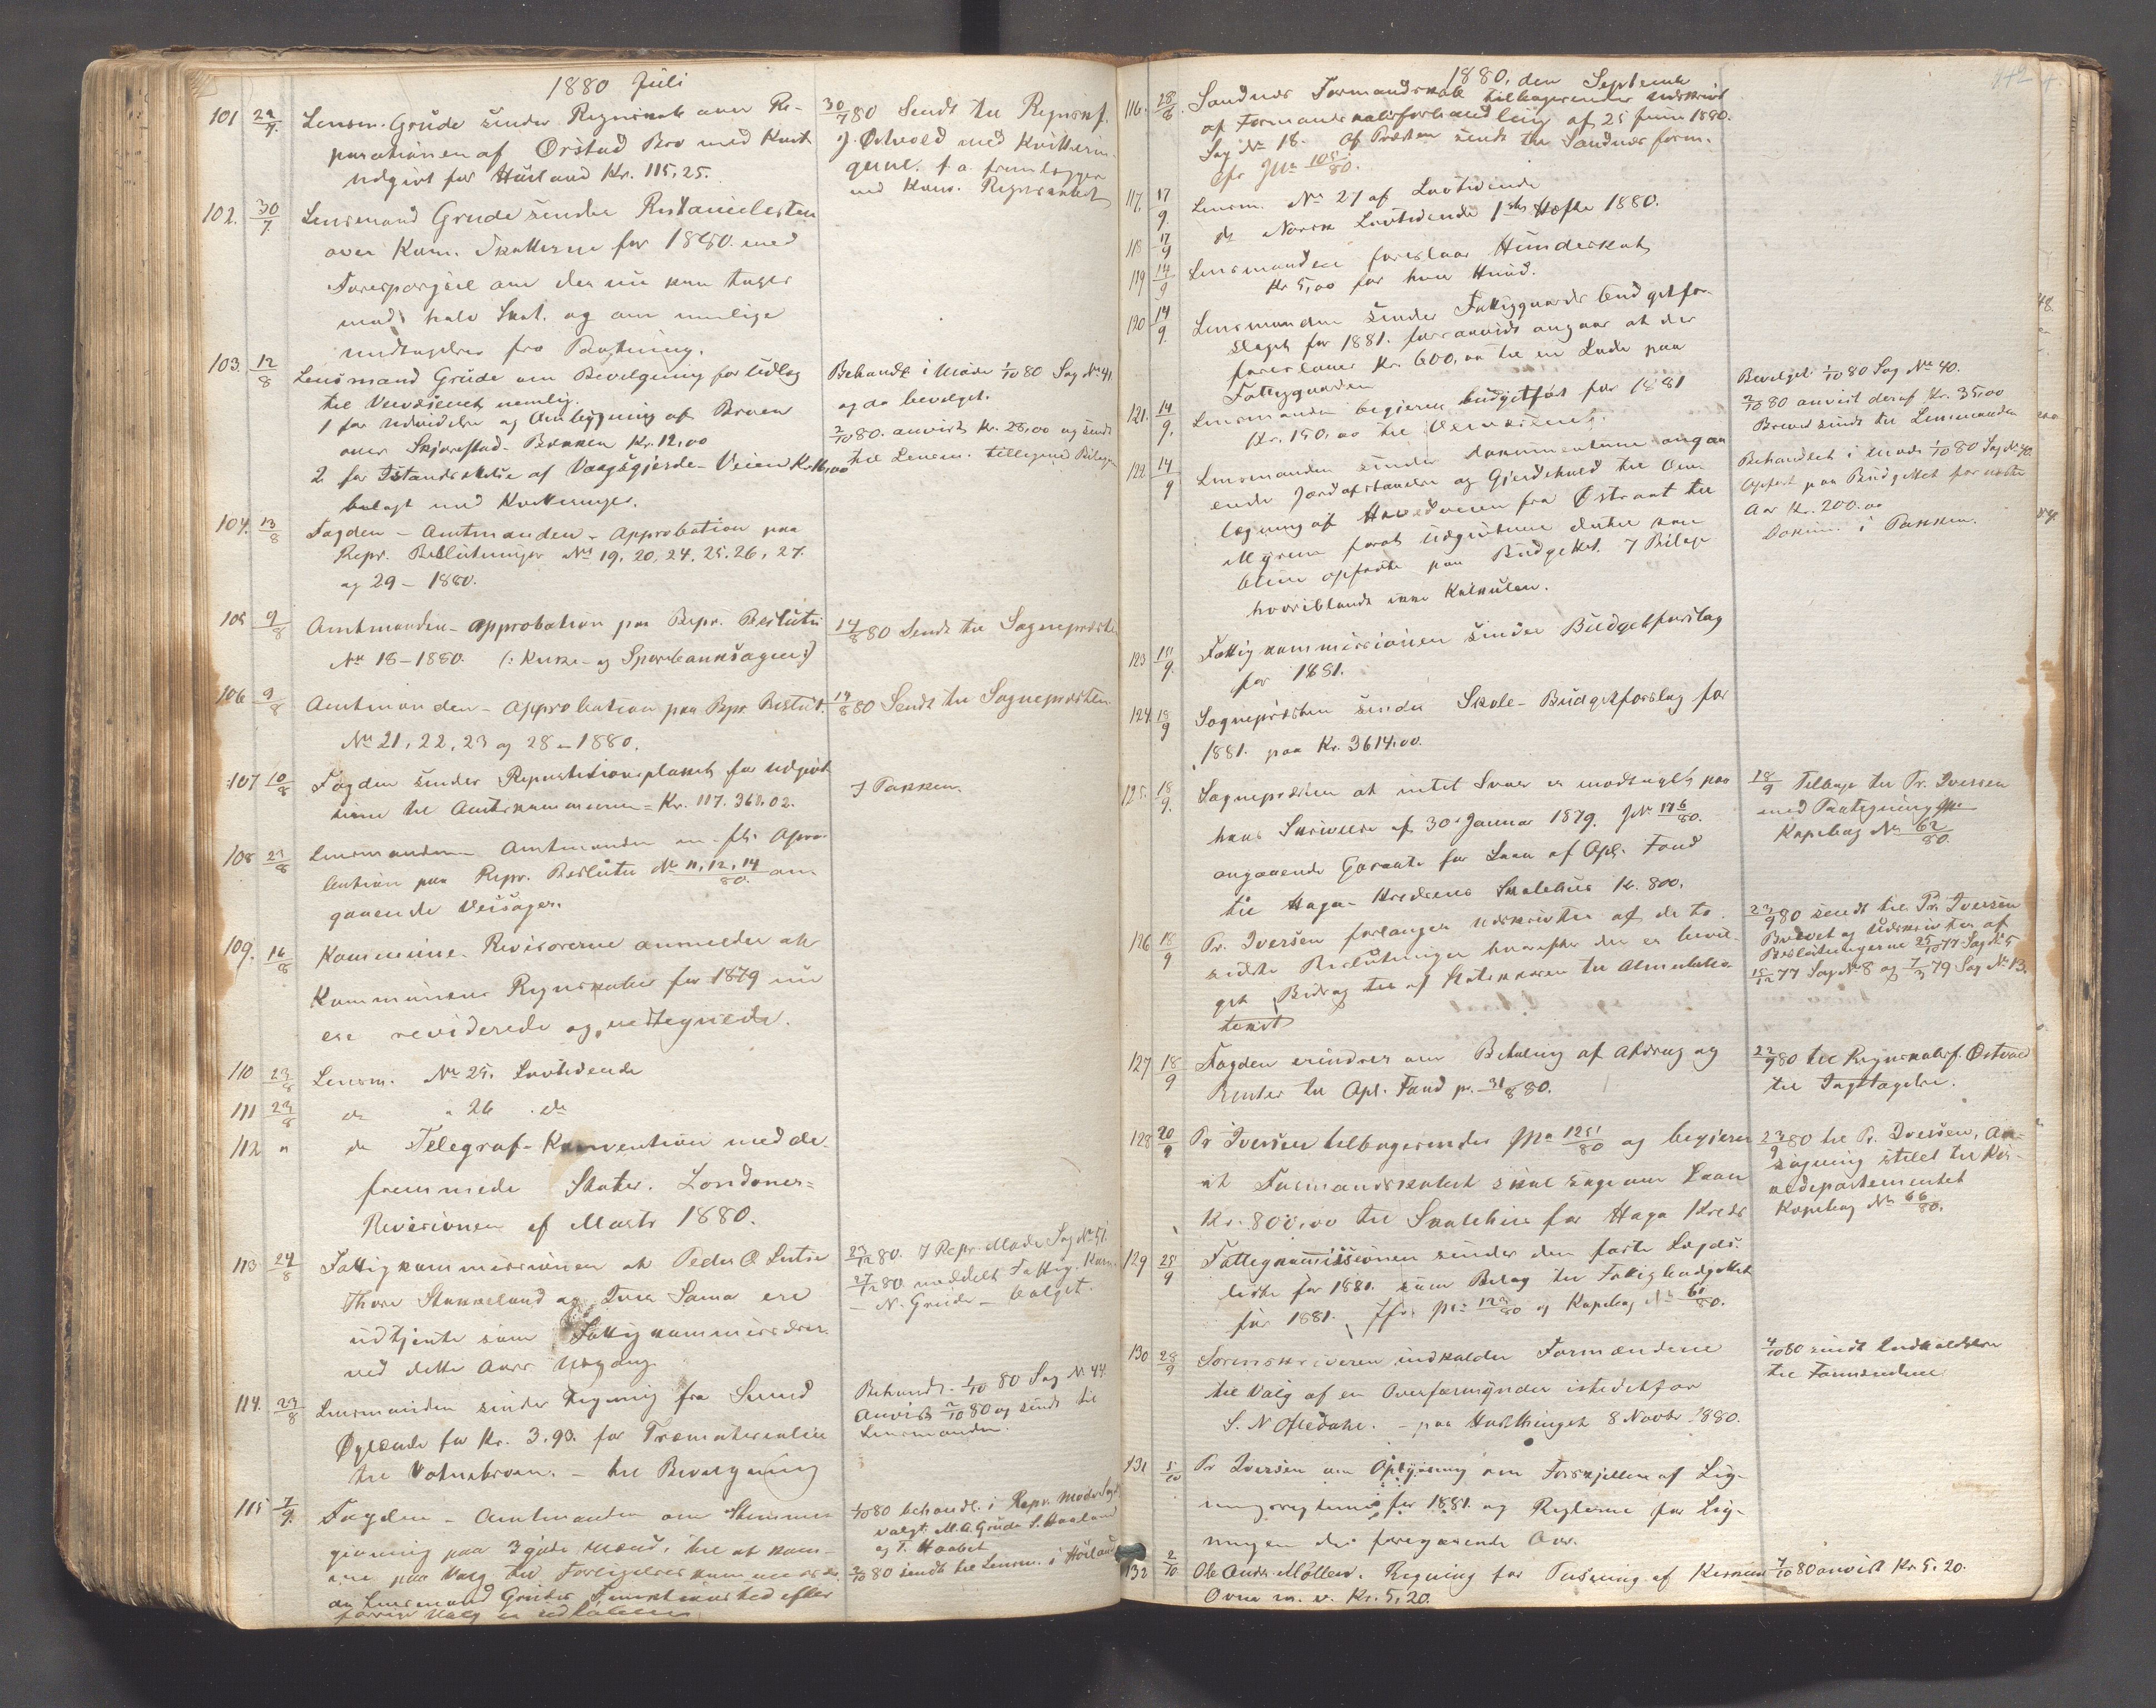 1880 Juli
101 29/7 Lensm. Grude sender Regnskab over Re-
parationen af Ørstad Bro med Kvit
udgivt for Høiland Kr. 115,25.
30/7 80 Sendt til Regnskf.
J. Østvold med Kvittern
f. a. fremlægges
ved Kom. Regnskabet
102. 30/7 Lensmand Grude sender Restancelisten
over Kom. Skatterne for 1880 med
Forespørgsel om der nu kan tages
mod halv Skat. og om mulige
undtagelser fra Pantning.
103. 12/8 Lensmand Grude om Bevilgning for Udlæg
til Veivæsenet nemlig.
1 for Udvidelse og Ombygning af Broen
over Skjærestad-Bækken Kr. 12,00
2 for Istandsættelse af Vaagsgjerde-Veien Kr. 16,00
belagt med Kvitteringer.
Behandl. i Møde 1/10 80 Sag No 41
og da bevilget.
2/10 80. anvist Kr. 28,00 og sendt
til Lensm. tilligemed Bilagen
104. 13/8 Fogden - Amtmanden - Approbation paa
Repr. Beslutninger No 19, 20, 24, 25, 26, 27.
og 29 - 1880.
105 9/8 Amtmanden - approbation paa Repr. Beslutn
No 18 - 1880. (: Kirke- og Sparebanksagen :)
14/8 80 Sendt til Sognepræsten
106 9/8 Amtmanden - approbation paa Repr. Beslut.
No 21, 22, 23 og 28 - 1880.
14/8 80 Sendt til Sognepræsten
107 10/8 Fogden sender Repartitionsplanen for udgivt
terne til Amtskommunen = Kr. 117.368.02.
I Pakken.
108 23/8 Lensmanden Amtmanden m. fl. Apro
bation paa Repr. Beslutn No 11, 12, 14/80. an
gaaende Veisager.
109. 16/8 Kommune-Revisorerne anmelder at
Kommunens Regnskaber for 1879 nu
ere reviderede og vedtegnede.
110 23/8 Lensm. No 25. Lovtidende
111 23/8 do " 26 . do
112 " do Telegraf-Konvention med de
fremmede Stater. Londoner-
Revisionen af Marts 1880.
113 24/8 Fattigkommissionen at Peder O Lutsi
Thore Stokkeland og Iver Soma ere
udtjente som Fattigkommissærer
ved dette Aars Udgang.
23/12 80. I Repr. Møde Sag No 51.
27/12 80 meddelt Fattig. Kom.
- N. Grude - valgt.
114. 23/8 Lensmanden sender Regning fra Svend
Øglænde for Kr. 3.93. for Træmaterialier
til Vatnebroen. - til Bevilgning
Behandl. 1/10 80 Sag No 44.
Anvist 2/10 80 og sendt til
Lensmanden.
115 7/9. Fogden - Amtmanden om Stemme
givning paa 3 gode Mænd, til at kom-
me paa Valg til Forligelseskommissær
da Lensmand Grudes Funktionstid efter
forrige Valg er udløben
1/10 80 behandl. i Repr. Møde Sag
valgt M. A. Grude S. Haaland
og T. Haabet
2/10 80 sendt til Lensm. i Høiland
1880, den Septembr
116. 28/6 Sandnæs Formandskab tilbagesender Udskrivt
af Formandskabsforhandling af 25 Juni 1880.
Sag No 18. Af Præsten sendt til Sandnæs form.
cfr JNo 105/80.
117. 17/9. Lensm. No 27 af Lovtidende
118 17/9 do Norsk Lovtidende 1ste Hæfte 1880.
119 14/9 Lensmanden foreslaar Hundeskat,
Kr 5,00 for hver Hund.
120 14/9. Lensmanden sender Fattiggaards budgetfor-
slaget for 1881. forsaavidt angaar at der
foreslaaes Kr. 600,00 til en Lade paa
Fattiggaarden
121. 14/9. Lensmanden begjærer budgetført for 1881
Kr. 150,00 til Veivæsenet.
Bevilget 1/10 80 Sag No 40.
2/10 80 anvist deraf Kr. 35,00
Brevet sendt til Lensmanden
122. 14/9 Lensmanden sender Dokumenterne angaa
ende Jordafstaaelse og Gjerdehold til Om-
lægning af Hovedveien fra Østraat til
Myren foråt Udgivterne dertil kan
blive opførte paa Budgettet. 7 Bilage
hvoriblandt ikke Kalkulen.
Behandlet i Møde 1/10 80 Sag No 40.
Opført paa Budgettet for næste
Aar Kr. 200.00
Dokum. i Pakken.
123 18/9. Fattigkommissionen sender Budgetforslag
for 1881.
124 18/9 Sognepræsten sender Skole-Budgetforslag for
1881. paa Kr. 3614,00.
125. 18/9. Sognepræsten at intet Svar er modtaget paa
hans Skrivelse af 30. Januar 1879. JNo 176/80.
angaaende Garanti for Laan af Opl. Fond
til Haga-Kredsens Skolehus Kr. 800.
18/9 Tilbage til Pr. Iversen
med Paategning
Kopibog No 62/80.
126 18/9 Pr. Iversen forlanger Udskrivter af de to
sidste Beslutninger hvorefter der er bevil-
get Bidrag til af Statskassen til Almueskole
23/9 80 sendt til Pr. Iversen
Brevet og Udskrivter af
Beslutningerne 25/10 77 Sag No 5
15/12 77 Sag No 8 og 7/3 79 Sag No 13.
127 18/9 Fogden erindrer om Betaling af Afdrag og
Renter til Opl. Fond pr. 31/8 80.
22/9 80 til Regnskabsf. Østvold
til Iagttagelse.
128 20/9 Pr Iversen tilbagesender JNo 125/80 og begjærer
at Formandskabet skal søge om Laan
Kr. 800,00 til Skolehus for Haga Kreds
23/9 80 til Pr. Iversen, An-
søgning stilet til Kir-
kedepartementet
Kopibog No 66/80.
129 25/9 Fattigkommissionen sender den faste Lægds-
liste for 1881. som Bilag til Fattigbudgettet
for 1881. Jfr. JNo 123/80 og Kopibog No 61/80.
130 28/9 Sorenskriveren indkalder Formændene
til Valg af en Overformynder istedetfor
S. N Oftedahl. - paa Høstthinget 8 Novbr 1880.
4/10 80 sendt Indkaldelsen
til Formændene
131 5/10 Pr Iversen om Oplysning om Forskjellen af Lig-
ningsreglerne for 1881. og Reglerne for Lig-
ningen det foregaaende Aar.
132 2/10 Ole Andr. Møller. Regning for Pudsning af Kirkens
Ovne m. v. Kr. 5,20.
7/10 80 anvist Kr. 5,20.